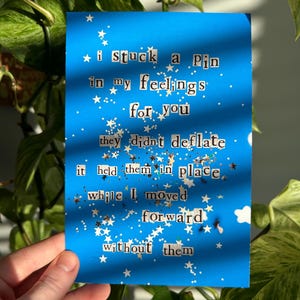 i stuck a Pin
in my feelings
for you
they didnt deflate
it held them in place
while I moved
forward
without them